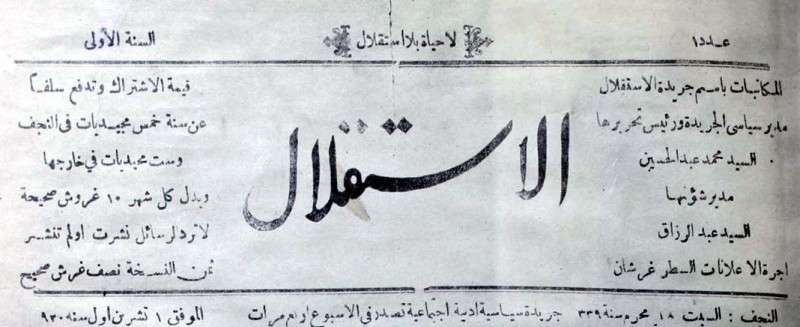 عدد ١
لا حياة بلا استقلال
السنة الأولى
المكاتبات باسم جريدة الاستقلال
مدير سياسي الجريدة ورئيس تحريرها
السيد محمد عبد الحسين
مدير شؤنها
السيد عبد الرزاق
اجرة الاعلانات السطر غرشان
الاستقلال
قيمة الاشتراك وتدفع سلفاً
عن سنة خمس مجيديات في النجف
وست مجيديات في خارجها
وبدل كل شهر ١٠ غروش صحيحة
لا ترد الرسائل نشرت او لم تنشر
ثمن النسخة نصف غرش صحيح
النجف : السبت ١٨ محرم سنة ٣٣٩
جريدة سياسية ادبية اجتماعية تصدر في الاسبوع اربع مرات
الموفق ١ تشرين اول سنة ٩٢٠